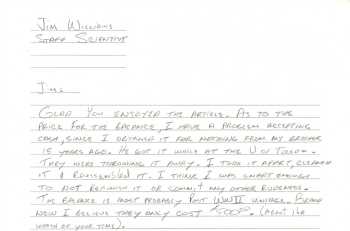 Jim Williams
Staff Scientist
Jim:
Glad you enjoyed the article. As to the
price for the balance, I have a problem accepting
cash, since I obtained it for nothing from my brother
15 years ago. He got it while at the U of
They were throwing it away. I took it apart, cleaned
it & reassembled it. I think I was smart enough
to not refinish it or commit any other rudeness.
The balance is most probably post WWII vintage. Brand
new I believe they only cost
worth of your time).